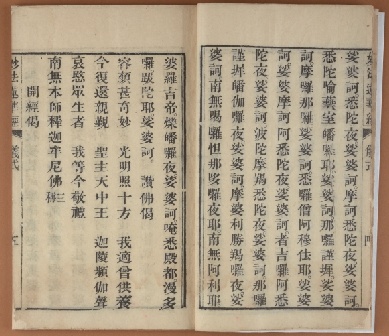 妙法蓮華經 儀式 四
娑婆訶悉陀夜娑婆訶摩訶悉陀夜娑婆訶
悉陀喻藝室皤囉耶娑婆訶那囉謹墀娑婆
訶摩囉那囉娑婆訶悉囉僧阿穆佉耶娑婆
訶娑婆摩訶阿悉陀夜娑婆訶者吉囉阿悉
陀夜娑婆訶波陀摩羯悉陀夜娑婆訶那囉
謹墀皤伽囉夜娑婆訶摩婆利勝羯囉夜娑
婆訶南無喝囉怛那哆囉夜耶南無阿利耶
婆羅吉帝爍皤囉夜娑婆訶唵悉殿都漫多
囉跋陀耶娑婆訶 讚佛偈
容顏甚奇妙 光明照十方 我適曾供養
今復還親覲 聖主天中王 迦陵頻伽聲
哀愍眾生者 我等今敬禮
南無本師釋迦牟尼佛三稱
開經偈
妙法蓮華經 儀式